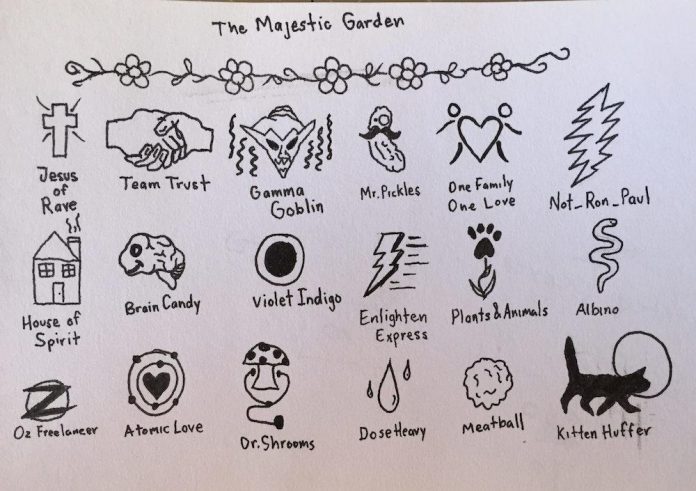 The Majestic Garden
Jesus
of
Rave
Team Trust
Gamma
Goblin
Mr. Pickles
One Family
One Love
Not_Ron_Paul
House of
Spirit
Brain Candy
Violet Indigo
Enlighten
Express
Plants & Animals
Albino
Oz Freelancer
Atomic Love
Dr. Shrooms
Dose Heavy
Meatball
Kitten Huffer